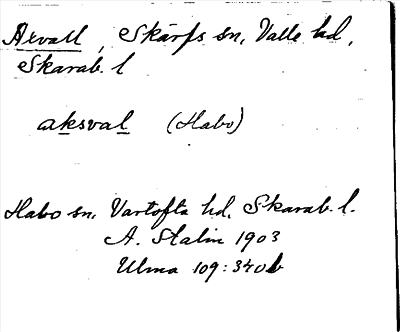 Axvall, Skärfs sn, Valle hd,
Skarab. l
aksval (Habo)
Habo sn, Vartofta hd, Skarab. l.
A. Stalin 1903
Ulma 109:340b